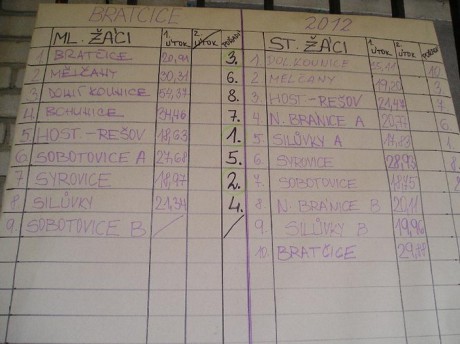 BRATČICE 2012
ML. ŽÁCI 1 ÚTOK 2 ÚTOK POŘADÍ
1 BRATČICE 20,91 3.
2 MĚLČANY 6.
3 DOLNÍ KOUNICE 54,37 8.
4 BOHUNICE 7.
5 HOST.-REŠOV 18,63 1.
6 SOBOTOVICE A 27,68 5.
7 SYROVICE 18,97 2.
8. SILŮVKY 21,34 4.
9. SOBOTOVICE B
ST. ŽÁCI 1 ÚTOK 2 ÚTOK
1 DOL. KOUNICE 10.
2 MĚLČANY 19,20 3
3. HOST-REŠOV 21,47 7.
4. N. BRANICE A 20,72 6.
5 SILŮVKY A 17,83 1.
6. SYROVICE 28,93 8.
7. SOBOTOVICE 18,75
8 N. BRANICE B 20,11
9. SILŮVKY B 19,96
10. BRATČICE